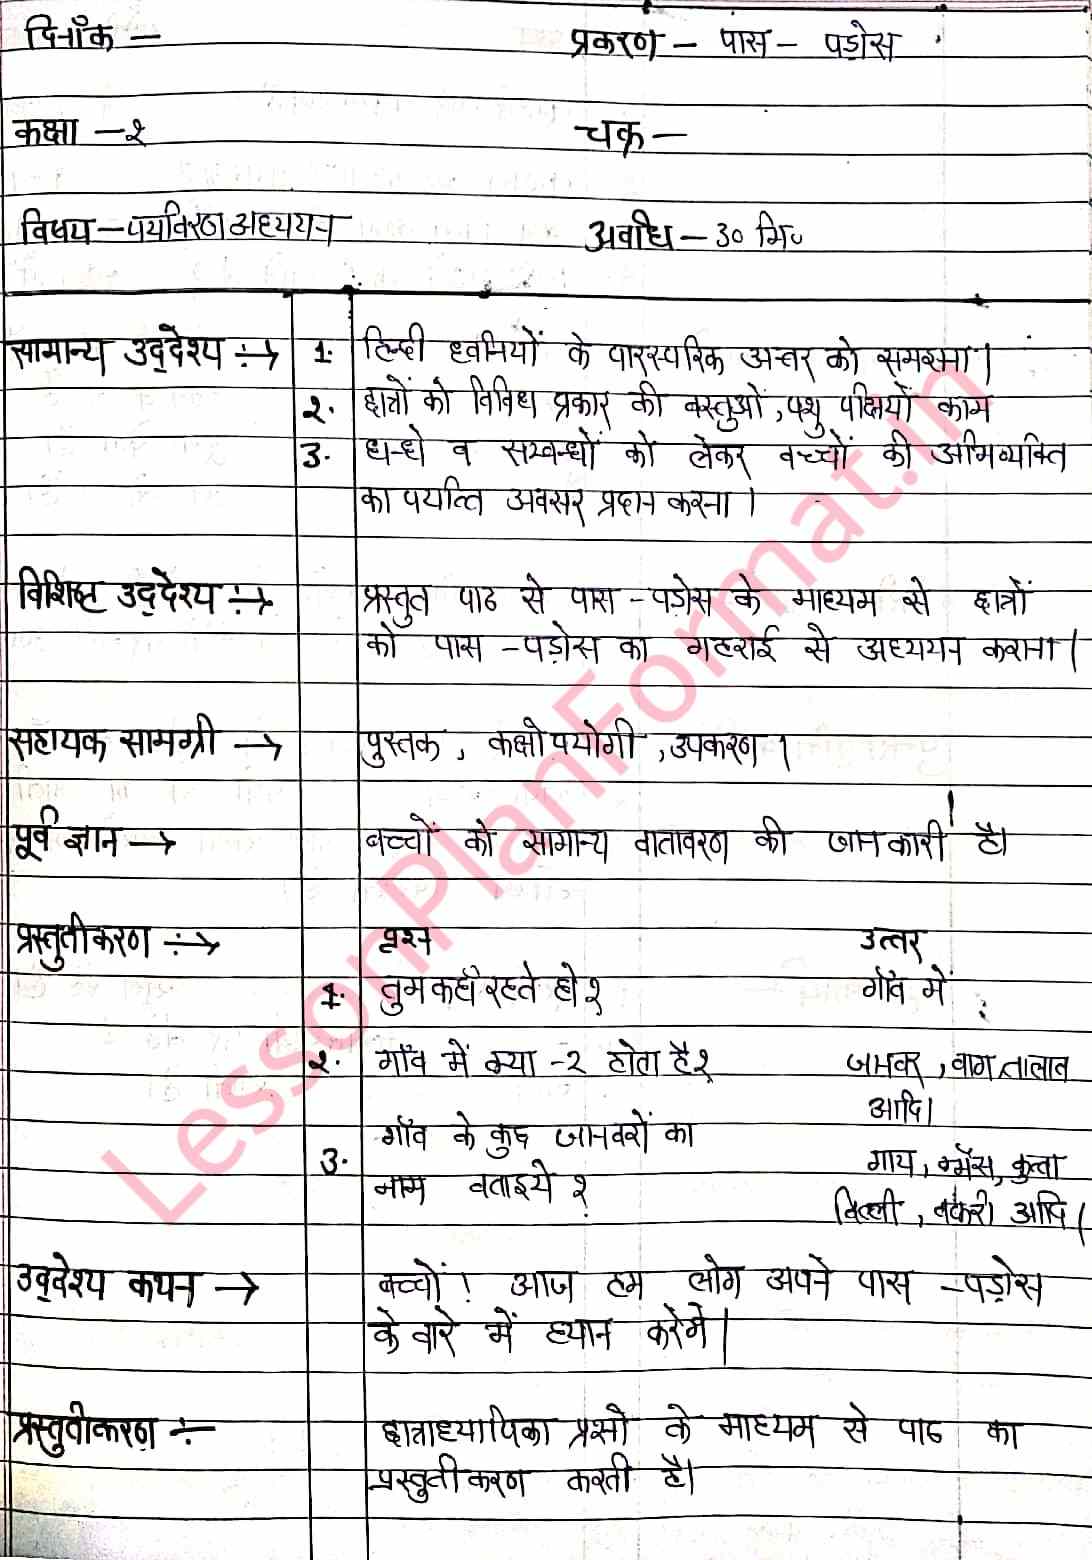 दिनाँक –
प्रकरण – पास – पड़ोस
कक्षा – २
चक्र –
विषय – पर्यावरण अध्ययन
अवधि – 30 मि०
सामान्य उद्देश्य ÷→ 1. हिन्दी ध्वनियों के पारस्परिक अन्तर को समझना।
२. छात्रों को विविध प्रकार की वस्तुओं, पशु पक्षियों काम
3. धन्धे व सम्बन्धों को लेकर बच्चों की अभिव्यक्ति
का पर्याप्त अवसर प्रदान करना।
विशिष्ट उद्देश्य ÷→ प्रस्तुत पाठ से पास – पड़ोस के माध्यम से छात्रों
को पास – पड़ोस का गहराई से अध्ययन कराना।
सहायक सामग्री → पुस्तक, कक्षोपयोगी, उपकरण।
पूर्व ज्ञान → बच्चों को सामान्य वातावरण की जानकारी है।
प्रस्तुतीकरण ÷→ प्रश्न उत्तर
1. तुम कहाँ रहते हो? गाँव में
२. गाँव में क्या -२ होता है? जानवर, बाग, तालाब
आदि।
3. गाँव के कुछ जानवरों का
नाम बताइये? गाय, भैंस, कुत्ता
बिल्ली, बकरी आदि।
उद्देश्य कथन → बच्चों! आज हम लोग अपने पास – पड़ोस
के बारे में ध्यान करेगें।
प्रस्तुतीकरण ÷ छात्राध्यापिका प्रश्नों के माध्यम से पाठ का
प्रस्तुतीकरण करती है।
LessonPlanFormat.in